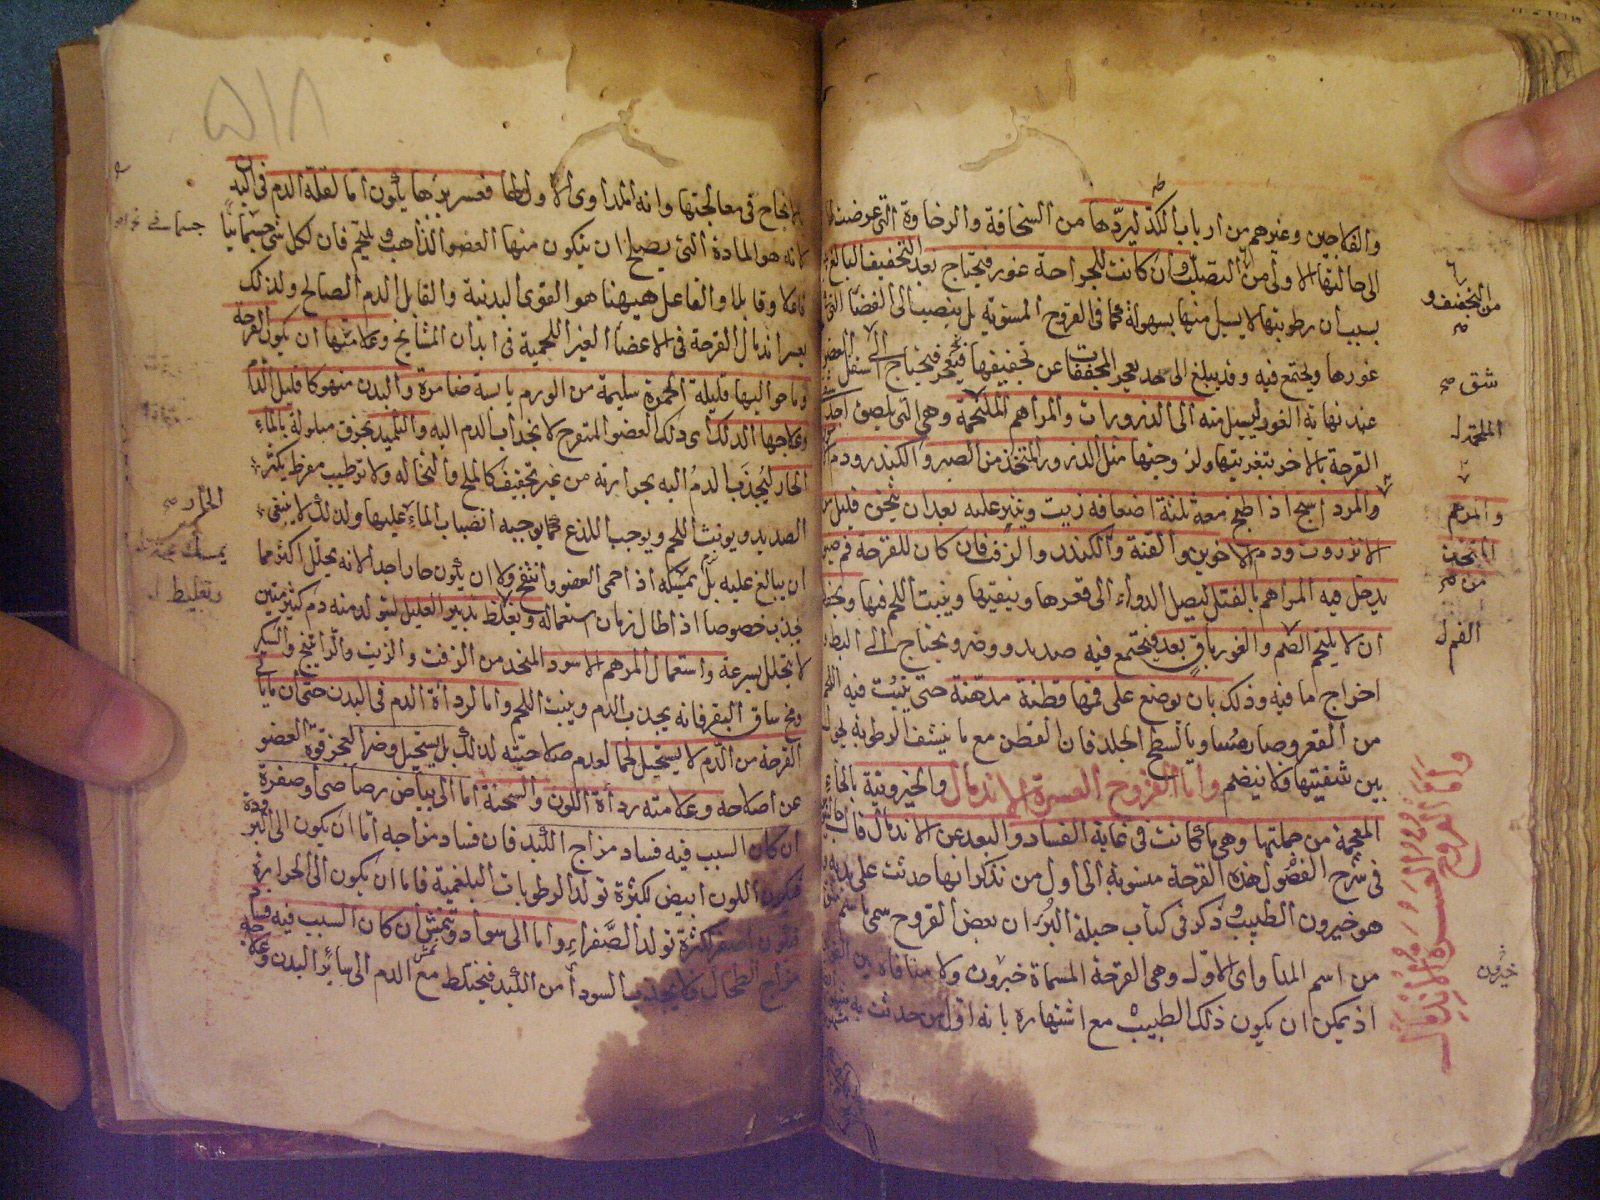 والفلاحين وغيرهم من ارباب الكد ليردها من السخافة والرخاوة التي عرضت لها
الى حالتها الاولى من التصلب وان كانت للجراحة غور فيحتاج بعد التجفيف البالغ
بسبب ان رطوبتها لا يسيل منها بسهولة كما في القروح المستوية بل ينصب الى الفضاء الذي
غورها ويجتمع فيه وقد يبلغ الى حد يعجز المجففات عن تجفيفها فيحتاج الى اسفل
عند نهاية الغور ليسيل منه الى الذرورات والمراهم الملحمة وهي التي تلصق احد
القرحة بالاخر بتغريتها ولزوجتها مثل الذرور المتخذ من الصبر والكندر ودم
والمرداسنج اذا طبخ معه ثلثة اضعافه زيت وينثر عليه بعد ان يثخن قليل
الانزروت ودم الاخوين والقنة والكندر والزفت فان كان للقرحة فم ضيق
يدخل فيه المراهم بالفتل ليصل الدواء الى قعرها وينقيها وينبت اللحم فيها
ان لا يلتحم الفم والغور باق بعد فيجتمع فيه صديد ووضر ويحتاج الى البط
اخراج ما فيه وذلك بان يوضع على فمها قطنة مدهنة حتى ينبت فيه اللحم
من القعر وصار مساويا لسطح الجلد فان القطن مع ما ينشف الرطوبة يحول
بين شفتيها فلا ينضم واما القروح العسرة الاندمال والخيرونية بالخاء
المعجمة من جملتها وهي ما كانت في غاية الفساد والبعد عن الاندمال قال
في شرح الفصول هذه القرحة منسوبة الى اول من نذكر انها حدثت على يديه
هو خيرون الطبيب وذكر في كتاب حيلة البرء ان بعض القروح سمي باسم
من اسم المداوي الاول وهي القرحة المسماة خيرون ولا منافاة بين
اذ يمكن ان يكون ذلك الطبيب مع اشتهاره بانه اول من حدثت به
من التجفيف و
شق صح
الملحمة
والمرهم
المتخذ
من صح
الفم
واما القروح العسرة الاندمال
خيرون
٥١٨
بانجاح في معالجتها وانه المداوي الاول لها فعسر برؤها يكون اما لقلة الدم في البدن
لانه هو المادة التي يصلح ان يتكون منها العضو الذاهب ويلتحم فان لكل شيء جسمانيا
فاعلا وقابلا والفاعل هيهنا هو القوى البدنية والقابل الدم الصالح ولذلك
يعسر اندمال القرحة في الاعضاء الغير اللحمية في ابدان المشايخ وعلامتها ان يكون القرحة
وما حواليها قليلة الحمرة سليمة من الورم يابسة ضامرة والبدن منهوكا قليل الدم
وعلاجها الدلك اي دلك العضو المتقرح لانجذاب الدم اليه والتكميد بخرق مبلولة بالماء
الحار لينجذب الدم اليه بحرارته من غير تجفيف كالملح والنخالة ولا ترطيب مفرط يكثر
الصديد ويوسخ اللحم ويوجب اللذع كما يوجبه انصباب الماء عليها ولذلك لا ينبغي
ان يبالغ عليه بل يمسك اذا احمى العضو وانتفخ ولا ان يكون حارا جدا لانه يحلل اكثر مما
يجذب خصوصا اذا طال زمان استعماله ويغلظ تدبير العليل ليتولد منه دم كثير متين
لا يتحلل بسرعة واستعمال المرهم الاسود المتخذ من الزفت والزيت والراتينج والسكر
ومخ ساق البقر فانه يجذب الدم وينبت اللحم واما لرداءة الدم في البدن حتى ان ما يأتي
القرحة من الدم لا يستحيل لحما لعدم صلاحيته لذلك بل يستحيل وضرا لعجز قوة العضو
عن اصلاحه وعلامته رداءة اللون والسحنة اما الى بياض رصاصي او صفرة
ان كان السبب فيه فساد مزاج الكبد فان فساد مزاجه اما ان يكون الى البرودة
فيكون اللون ابيض لكثرة تولد الرطوبات البلغمية فاما ان يكون الى الحرارة
فيكون اصفر لكثرة تولد الصفراء واما الى سواد ونمش ان كان السبب فيه فساد
مزاج الطحال فلا يجذب السوداء من الكبد فيختلط مع الدم الى سائر البدن وعلاجه
الحار صح